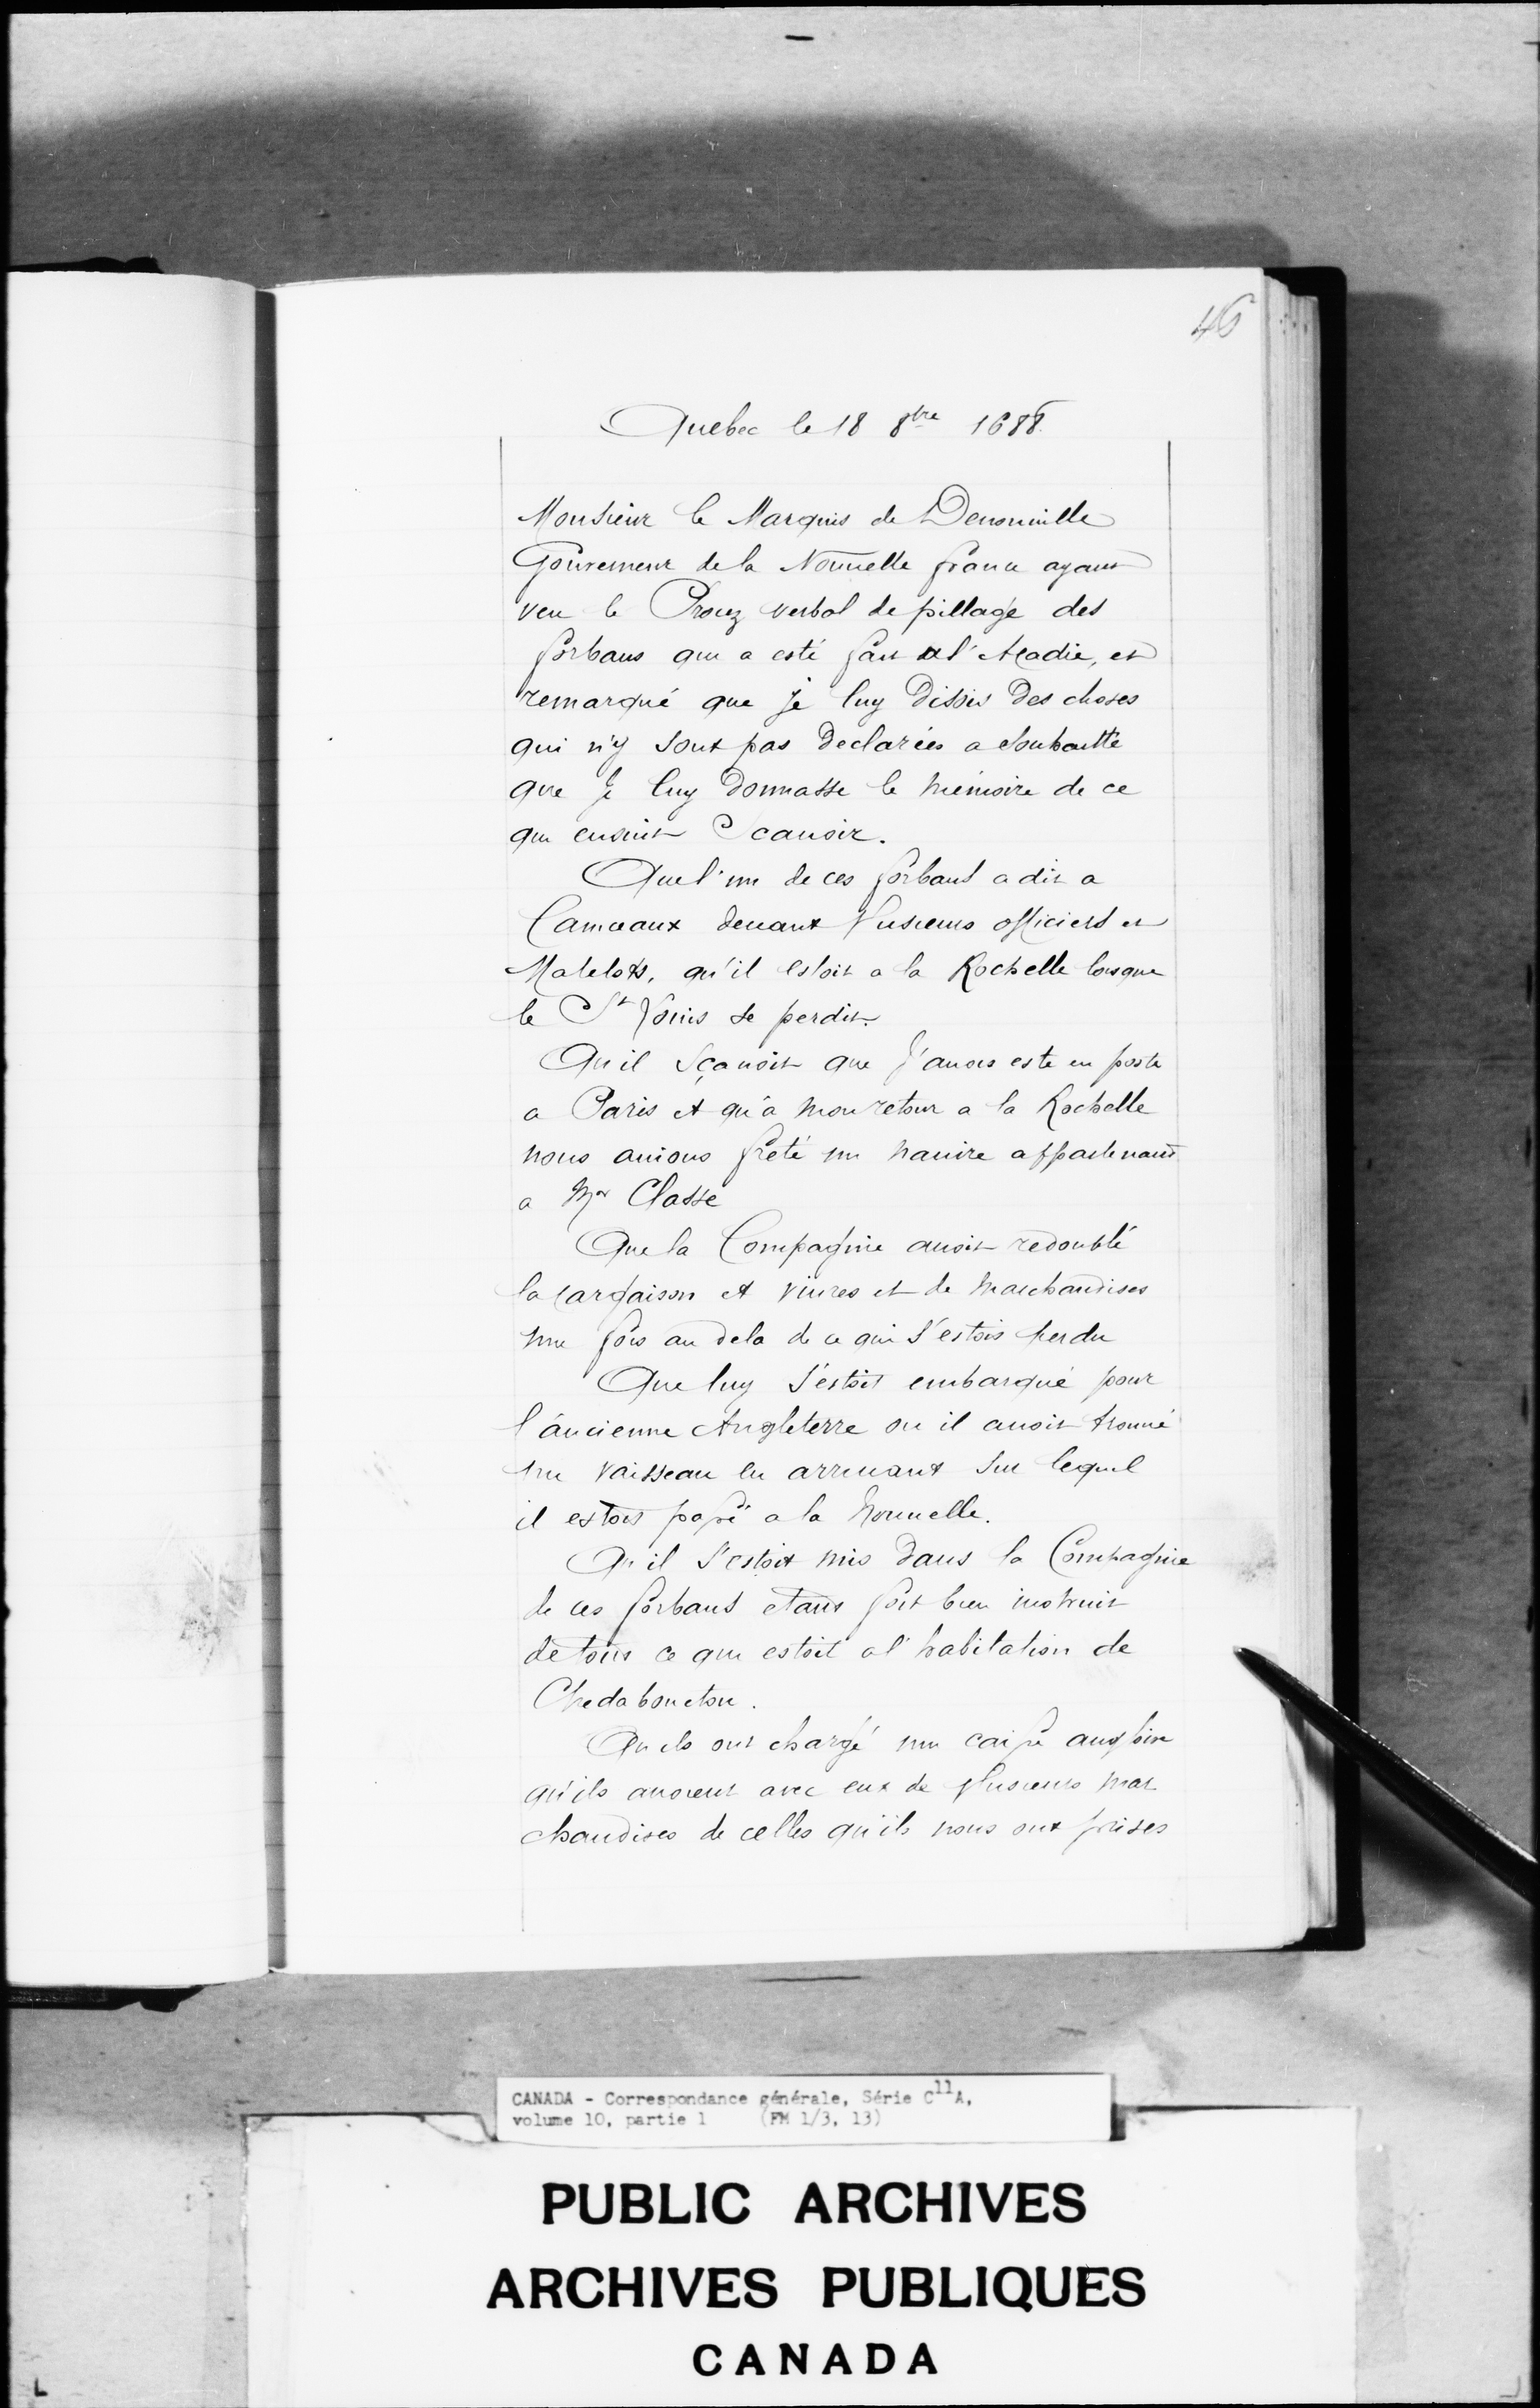 46
Quebec le 18 8bre 1688.
Monsieur le Marquis de Denonuille
Gouverneur de la Nouuelle france ayant
veu le Procez verbal de pillage des
forbans qui a esté fait a l'Acadie, et
remarqué que je luy disois des choses
qui n'y sont pas declarées a souhaitté
que je luy donnasse le mémoire de ce
qui ensuit Scauoir.
Que l'un de ces forbans a dit a
Camceaux deuant plusieurs officiers et
Matelots, qu'il estoit a la Rochelle lorsque
le St Louis se perdit.
Qu'il sçauoit que j'auois esté en poste
a Paris et qu'a mon retour a la Rochelle
nous auions freté un nauire appartenant
a Mr Classe
Que la Compagnie auoit redoublé
la cargaison et viures et de marchandises
une fois au dela de ce qui s'estois perdu
Que luy s'estoit embarqué pour
l'ancienne Angleterre ou il auoit trouué
un vaisseau en arriuant sur lequel
il estoit passé a la Nouuelle.
Qu'il s'estoit mis dans la Compagnie
de ces forbans etant fort bien instruit
de tous ce qui estoit a l'habitation de
Chedabouctou.
Qu'ils ont chargé une caiche angloise
qu'ils auoient avec eux de plusieurs mar
chandises de celles qu'ils nous ont prises
CANADA - Correspondance générale, Série C11A,
volume 10, partie 1 (FM 1/3, 13)
PUBLIC ARCHIVES
ARCHIVES PUBLIQUES
CANADA